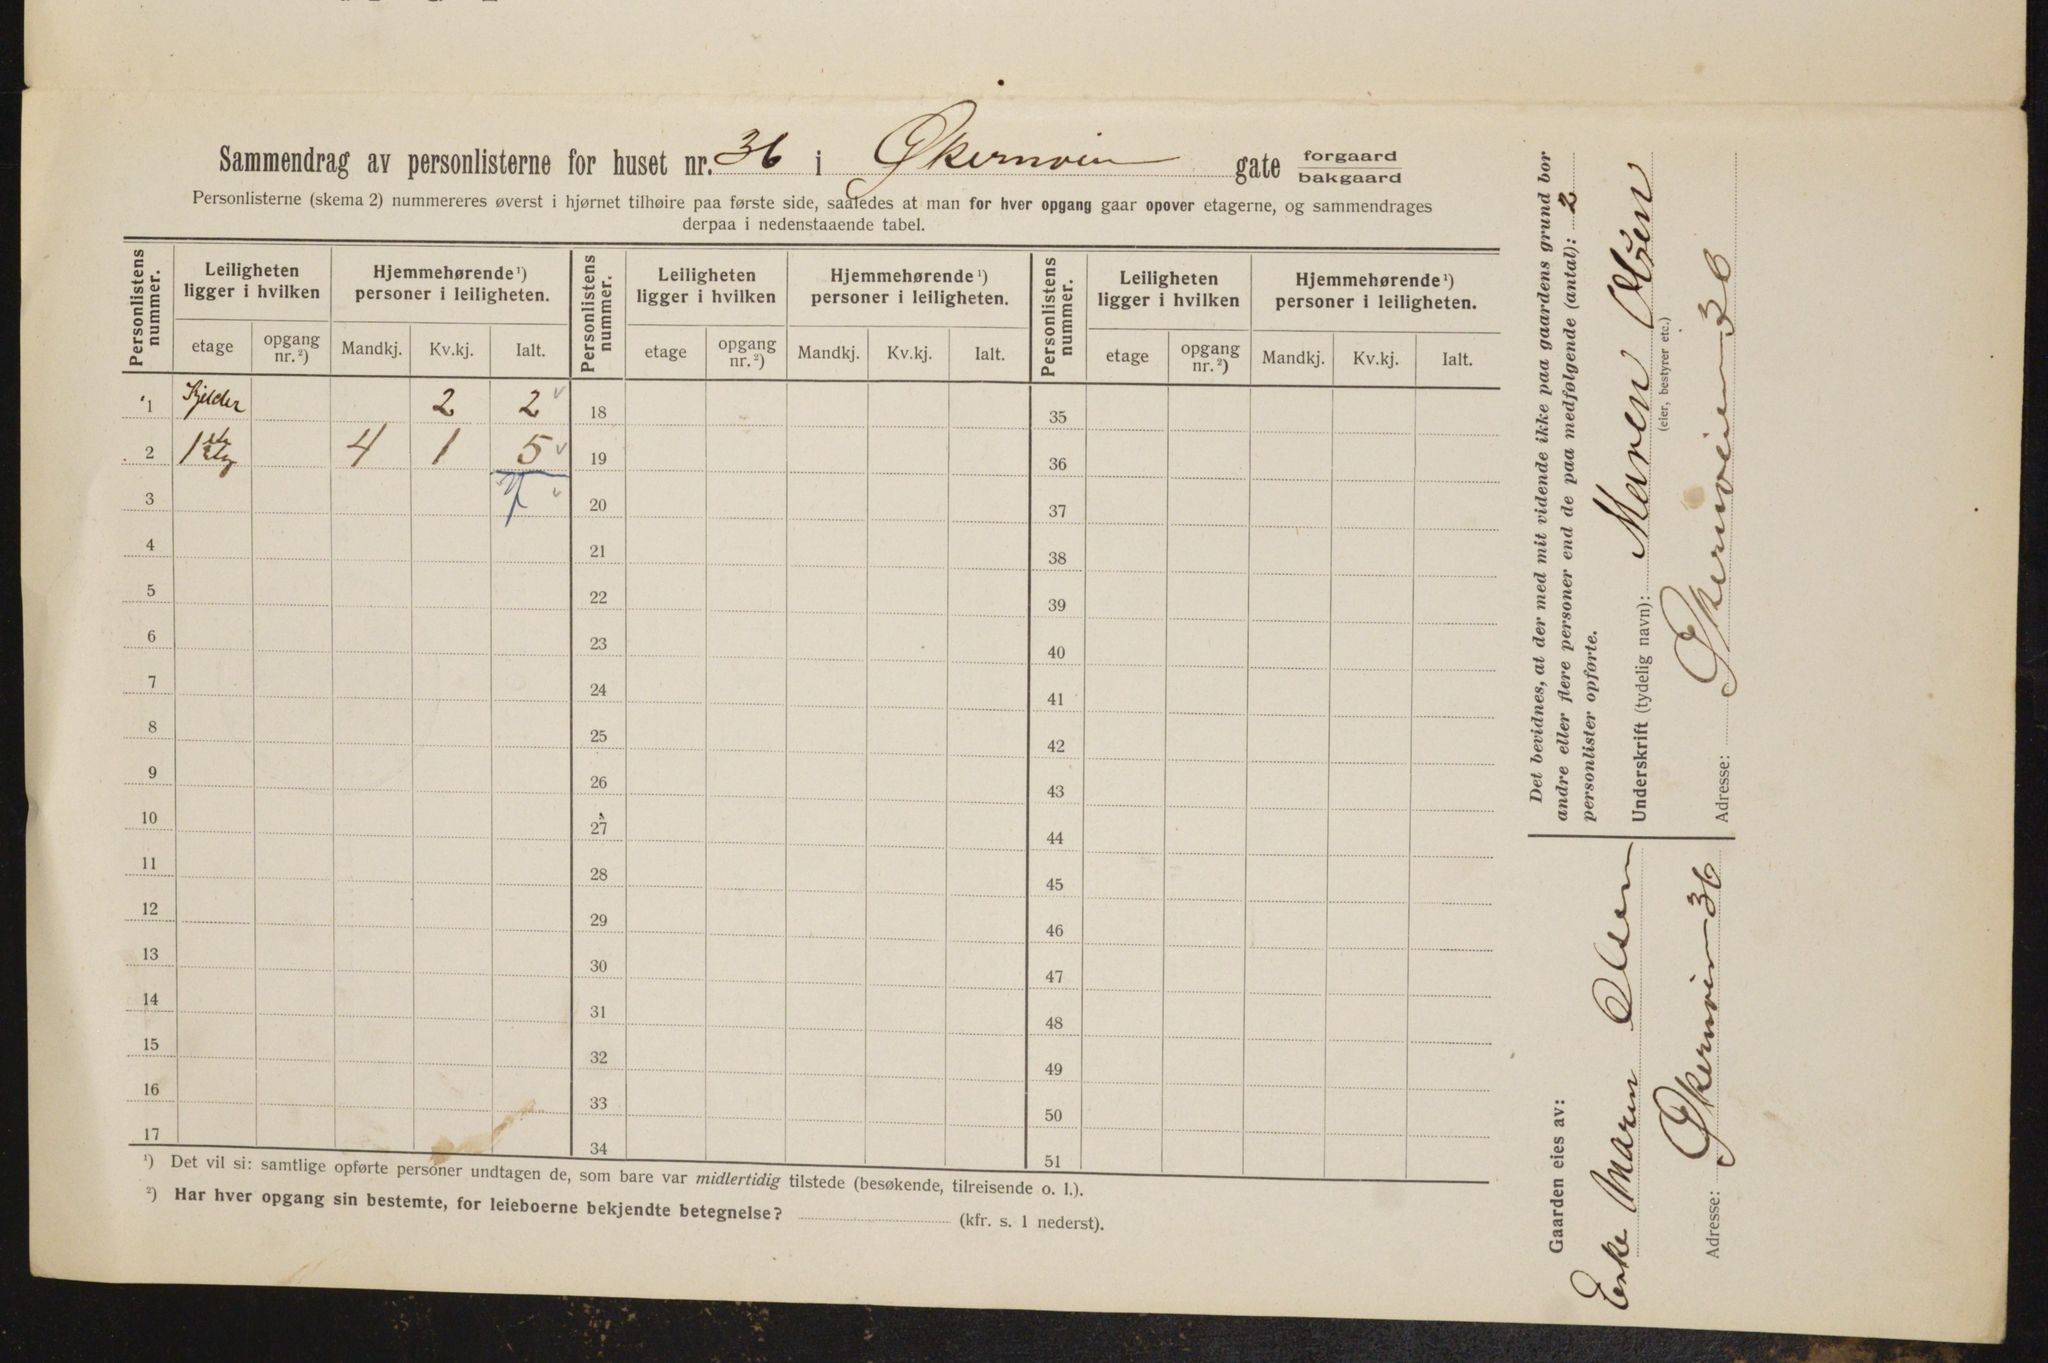 Sammendrag av personlisterne for huset nr. 36 i Økernveien gate forgaard
bakgaard
Personlisterne (skema 2) nummereres øverst i hjørnet tilhøire paa første side, saaledes at man for hver opgang gaar opover etagerne, og sammendrages
derpaa i nedenstaaende tabel.
Personlistens nummer. Leiligheten ligger i hvilken Hjemmehørende ¹) personer i leiligheten. Personlistens nummer. Leiligheten ligger i hvilken Hjemmehørende ¹) personer i leiligheten. Personlistens nummer. Leiligheten ligger i hvilken Hjemmehørende ¹) personer i leiligheten.
etage opgang nr.²) Mandkj. Kv.kj. Ialt. etage opgang nr.²) Mandkj. Kv.kj. Ialt. etage opgang nr.²) Mandkj. Kv.kj. Ialt.
1 Kjelder 2 2 18 35
2 1ste etg 4 1 5 19 36
3 7 20 37
4 21 38
5 22 39
6 23 40
7 24 41
8 25 42
9 26 43
10 27 44
11 28 45
12 29 46
13 30 47
14 31 48
15 32 49
16 33 50
17 34 51
¹) Det vil si: samtlige opførte personer undtagen de, som bare var midlertidig tilstede (besøkende, tilreisende o. l.).
²) Har hver opgang sin bestemte, for leieboerne bekjendte betegnelse? (kfr. s. 1 nederst).
Det bevidnes, at der med mit vidende ikke paa gaardens grund bor
andre eller flere personer end de paa medfølgende (antal): 2
personlister opførte.
Underskrift (tydelig navn): Maren Olsen
(eier, bestyrer etc.)
Adresse: Økernveien 36
Gaarden eies av:
Enke Maren Olsen
Adresse: Økernveien 36